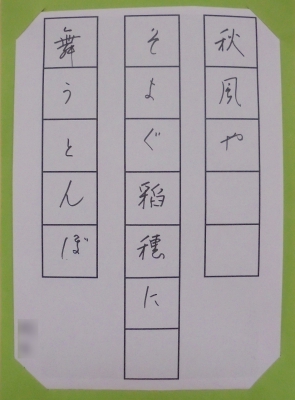 秋風や
そよぐ稲穂に
舞うとんぼ